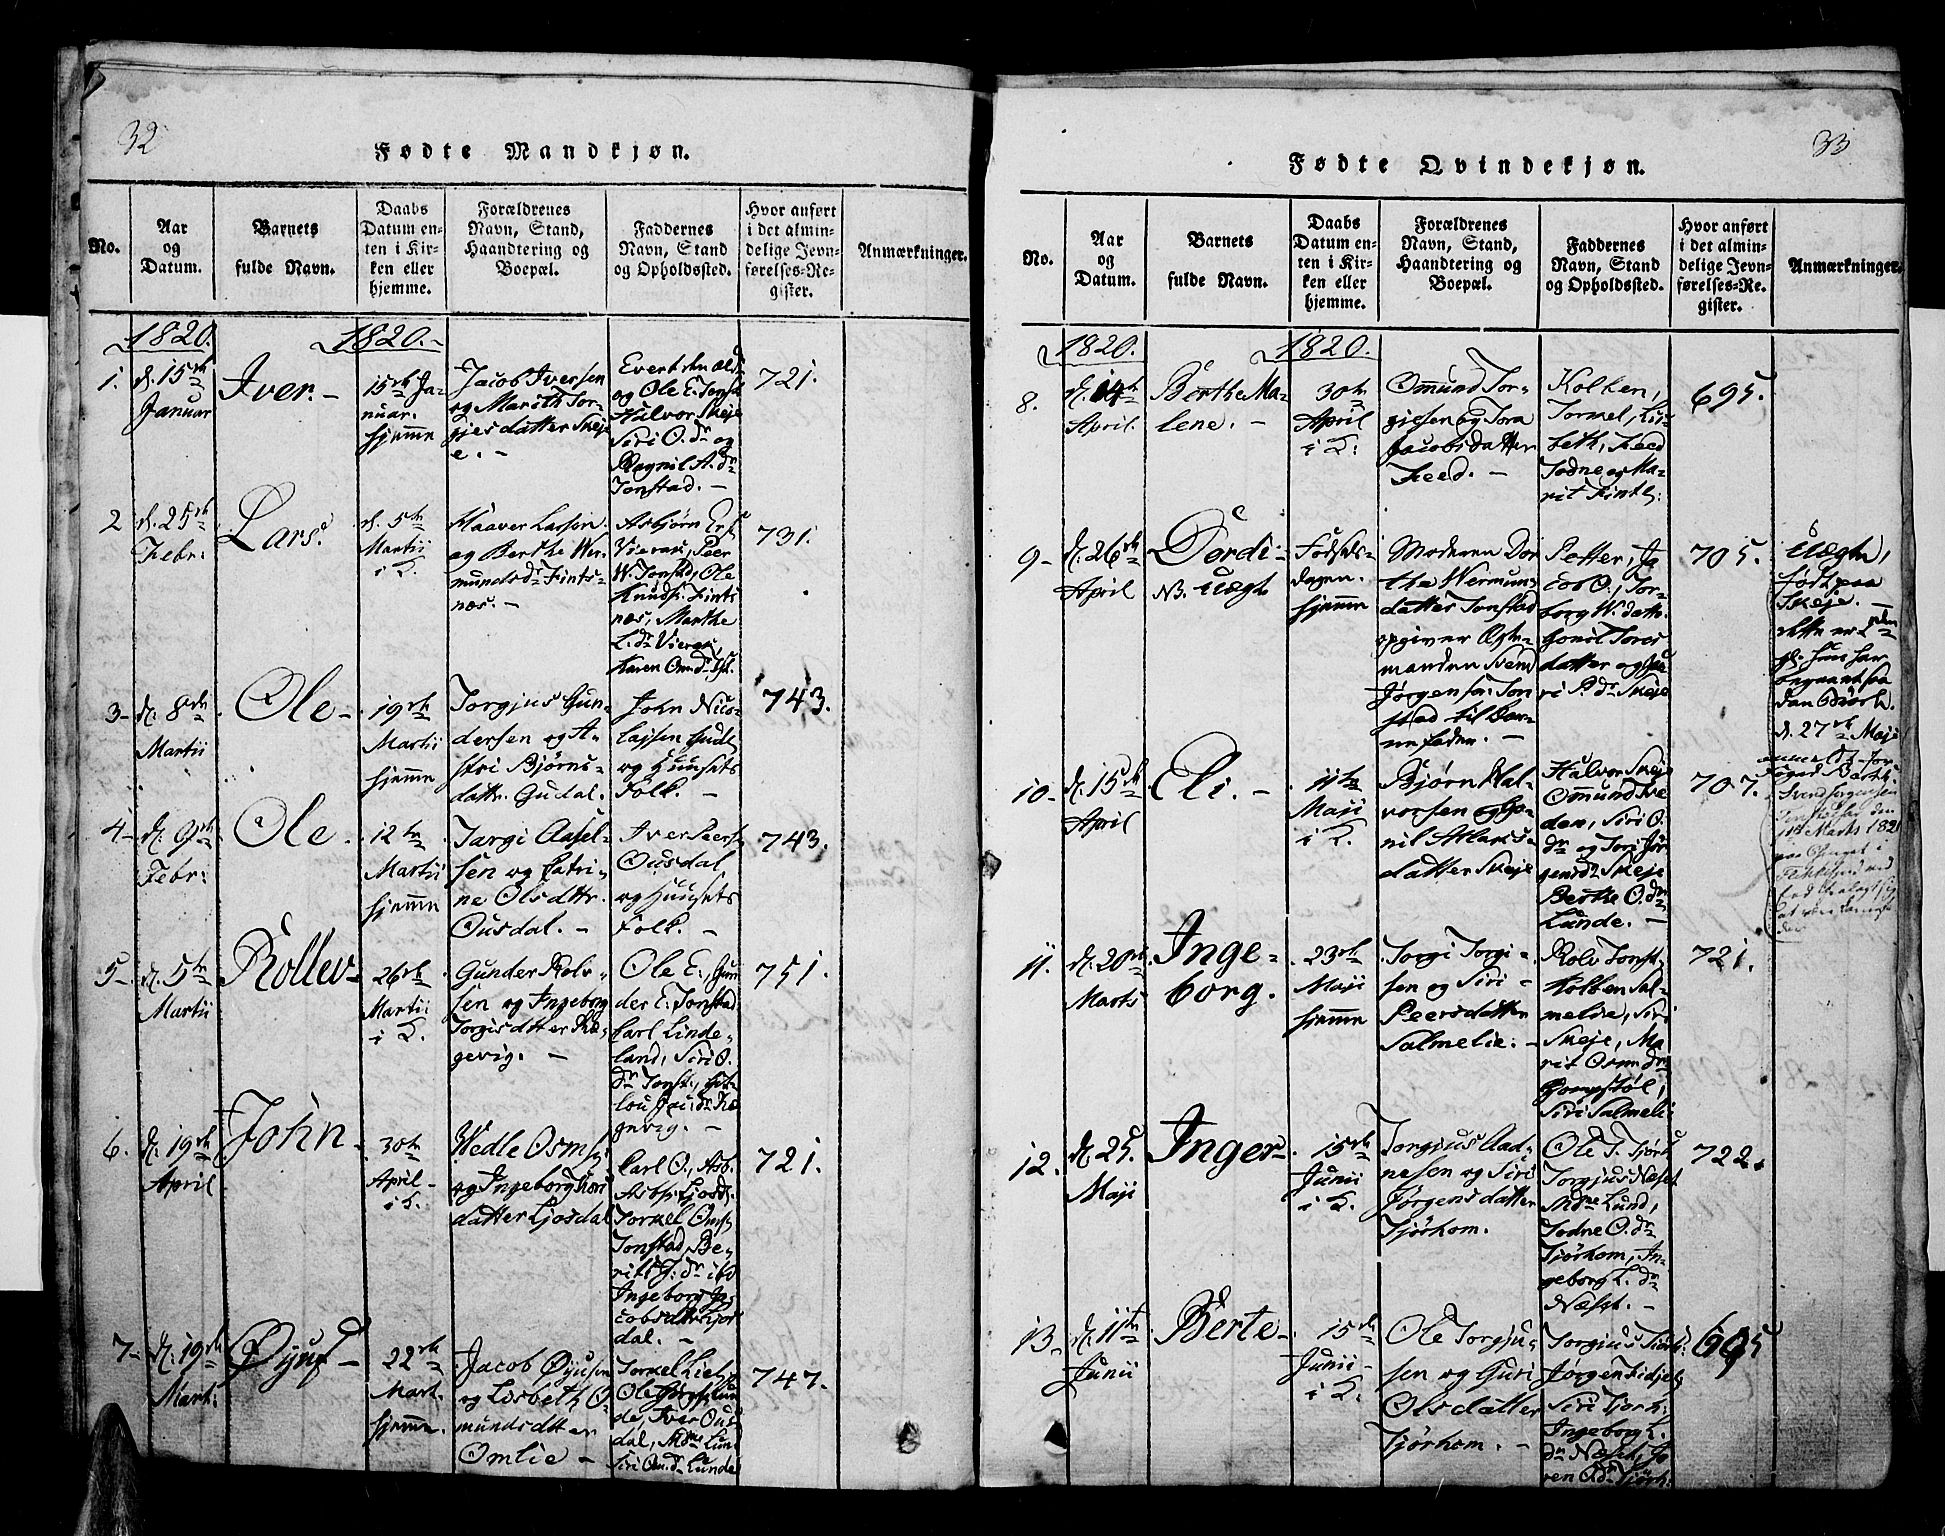 32
Fødte Mandkjøn.
No.
Aar
og
Datum.
Barnets
fulde Navn.
Daabs
Datum en-
ten i Kir-
ken eller
hjemme.
Forældrenes
Navn, Stand,
Haandtering og
Boepæl.
Faddernes
Navn, Stand
og Opholdssted.
Hvor anført
i det almin-
delige Jevn-
førelses-Re-
gister.
Anmærkninger.
1820.
1820.
1.
d. 15de
Januar
Iver.
15de Ja-
nuar.
hjemme
Jacob Iversen
og Marith Tor-
gjesdatter Skeje
og Ole E. Tonst
Halvor Skeje
Siri O. dr og
Ragnil A. dr
Tonstad.
721.
2
d. 25de
Febr:
Lars.
d. 5te
Martii
i K.
Haaver Larsen
og Berthe Wer-
mundsdr Fints-
næs.
Asbjørn
Peer
W. Tonstad, Ole
Knuds: Fints
næs, Marthe
L. dr
Karen Omdr
731.
3
d. 8de
Martii
Ole
19de
Martii
hjemme
Torgjus Gun-
dersen og A-
stri Bjørns-
dattr. Gudal.
John Nico-
lajsen Gudl
og Huusets
Folk.
743.
4
d. 9de
Febr:
Ole
12te
Martii
hjemme
Targi Aasel-
sen og Catri-
ne Olsdttr.
Ousdal.
Iver Peers
Ousdal
og Huusets
Folk.
743.
5
d. 5te
Martii
Rollev
26de
Martii
i K.
Gunder Rolv-
sen og Ingeborg
Torgisdatter Re-
gevig.
Ole E., Gun
der E. Tonstad
Carl Linde-
land, Siri O.
dr Tonst.,
gevig.
751.
6.
d. 19de
April
John
30te
April
i K.
Wedle Osms:
og Ingeborg
datter Ljosdal
Carl O., Asb.
Asbs: Ljosd.
Tormel Oms
Tonstad, Be-
rit
Ingeborg Ja-
cobsdttr Ljos
dal.
721.
7
d. 19de
Mart:
Øyuf
22de
Mart.
hjemme.
Jacob Øyusen
og Lisbeth O-
mundsdtter
Omlie
Tormel
Ole Lun
de, Iver Ous
dal, Mdme Lund
Siri Om. dr Lunde
747.
33
Fødte Qvindekjøn.
No.
Aar
og
Datum.
Barnets
fulde Navn.
Daabs
Datum en-
ten i Kir-
ken eller
hjemme.
Forældrenes
Navn, Stand,
Haandtering og
Boepæl.
Faddernes
Navn, Stand
og Opholdssted.
Hvor anført
i det almin-
delige Jevn-
førelses-Re-
gister.
Anmærkninger.
1820.
1820.
8.
d. 14de
April.
Berthe Ma-
lene.
30te
April
i K:
Ommund Tor-
gjesen og Tora
Jacobsdatter
Heed.
Kolben,
Tormel, Lis-
beth, Heed
Todne og Ma-
rit Fintl:
695.
9
d. 26de
April
Dordi
NB. Uægte
Fødsels-
dagen.
hjemme
Moderen Dor
the Wermun
datter Tonstad
opgiver Ægte-
manden Svend
Jørgensen Ton
stad til Bar-
nefader.
Petter, Ja
cob O., Tor-
borg W. datt
Gonil Tores
datter og Gu
ri P. dr Skeje
705.
Uægte,
født paa
Skeje.
dette er 2den
g. hun har
begaaet saa
dan Brøde.
d. 27de Maji
10
d. 15de
April
Eli.
11te
Maji
i K:
Bjørn Hal-
vorsen og Go-
nil Atlaks-
datter Skeje
Halvor Skeje
Ommund Sve
den, Siri O.
dr og Tori Jør
gensd. Skeje
Berthe O. dr
Lunde.
707.
11.
d. 20de
Marts
Inge-
borg.
23de
Maji
hjemme
Torgi Torgi-
sen og Siri
Peersdatter
Salmelie.
Rolv Tonst.
Kolben Sal-
melie, Siri
Skeje, Ma
rit Osm. dr
Siri Salmeli
721.
12.
d. 25.
Maji
Inger
15de
Junii
i K.
Torgjus Aad-
nesen og Siri
Jørgensdatter
Tjørhom.
Ole T. Tjørh
Torgjus Næset
Mdme Lund,
Todne O. dr
Tjørhom, In-
geborg L. dr
Næset.
722.
13.
d. 11te
Junii
Berte
15de
Junii
i K:
Ole Torgju-
sen og Guri
Olsdatter
Tjørhom.
Torgius Tjørh:
Jørgen Fidjel
Siri Tjorh:
Ingeborg L.
dr Næset,
ren O. dr Tjørh:
695